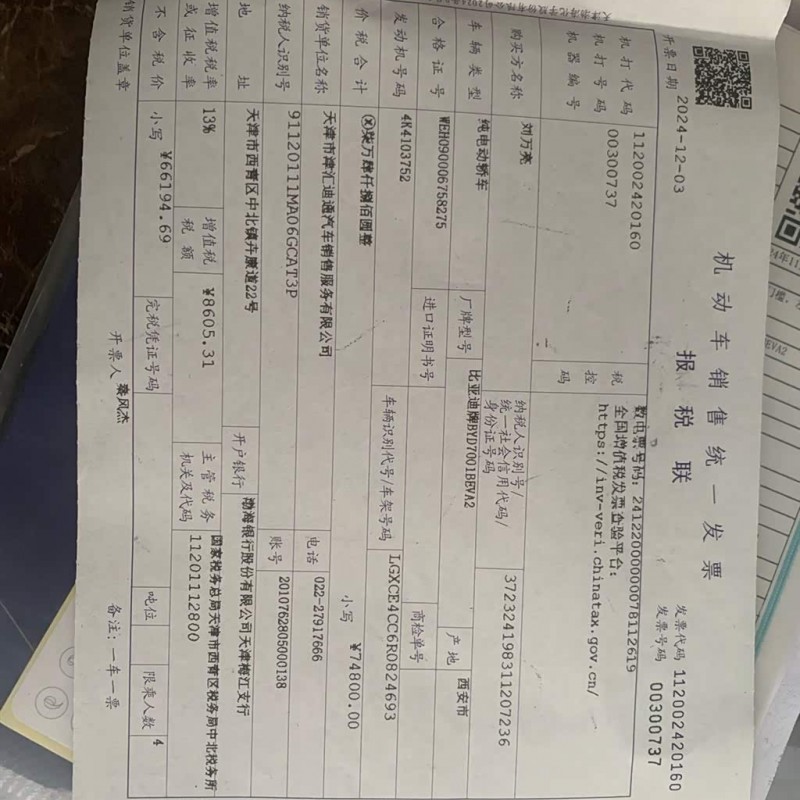 机动车销售统一发票
报税联
发票代码 112002420160
发票号码 00300737
开票日期 2024-12-03
机打代码 112002420160
机打号码 00300737
机器编号
税控码
数电票号码：24122000000078112619
全国增值税发票查验平台：
https://inv-veri.chinatax.gov.cn/
购买方名称 刘万亮
纳税人识别号/统一社会信用代码/身份证号码 372324198311207236
车辆类型 纯电动轿车 厂牌型号 比亚迪牌BYD7001BEVA2 产地 西安市
合格证号 WEH090006758275 进口证明书号 商检单号
发动机号码 4K4103752 车辆识别代号/车架号码 LGXCE4CC6R0824693
价税合计 ⊗柒万肆仟捌佰圆整 小写 ¥74800.00
销货单位名称 天津市津汇迪通汽车销售服务有限公司 电话 022-27917666
纳税人识别号 91120111MA06GCAT3P 账号 2010762805000138
地址 天津市西青区中北镇卉康道22号 开户银行 渤海银行股份有限公司天津梅江支行
增值税税率或征收率 13% 增值税税额 ¥8605.31 主管税务机关及代码 国家税务总局天津市西青区税务局中北税务所
11201112800
不含税价 小写 ¥66194.69 完税凭证号码 吨位 限乘人数 4
销货单位盖章 开票人 凤杰 备注：一车一票